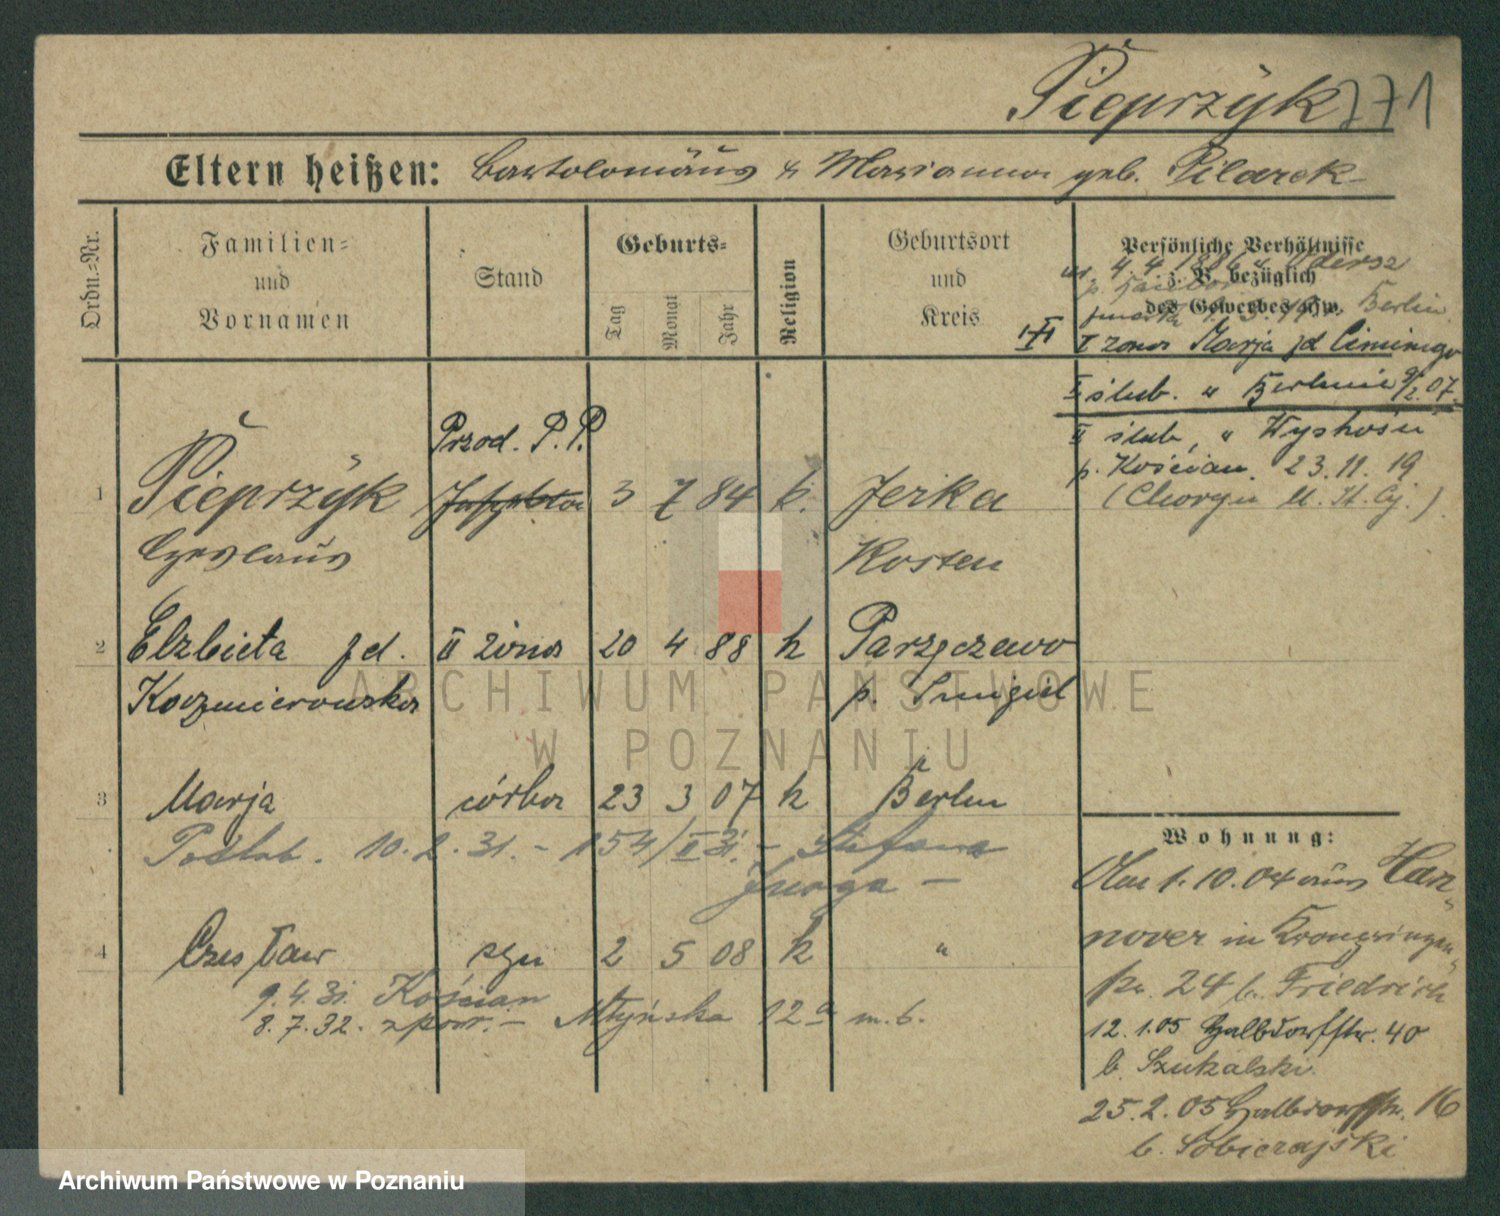 Pieprzyk 771
Eltern heißen: Bartolomäus & Marianna geb. Pilarek
Ordn.=Nr.
Familien= und Vornamen
Stand
Geburts=
Tag Monat Jahr
Religion
Geburtsort und Kreis
Persönliche Verhältnisse z. B. bezüglich des Gewerbes usw.
ur. 4. 4. 1886
zmarła Berlin
I żona Marja zd
I ślub. w Berlinie 9/2. 07.
II ślub, w Wyskość
p. Kościan. 23. 11. 19
Przod. P. P.
1 Pieprzyk 3 7 84 k. Jerka
Czeslaus Kosten
2 Elzbieta zd. II żona 20 4 88 k Parzęczewo
Kaczmierowska p. Smigiel
3 Marja córka 23 3 07 k Berlin
Poślub. 10. 2. 31. - 154/II 31. - Stefana
Jurga -
4 Czesław syn 2 5 08 k "
9. 4. 31. Kościan
8. 7. 32. zpow. - Młyńska 12a m. 6.
Wohnung:
1. 10. 04 aus Han=
nover in Kronprinzen=
str. 24 b. Friedrich
12. 1. 05 Halbdorfstr. 40
b. Szukalski.
25. 2. 05 Halbdorfstr. 16
b. Sobierajski
ARCHIWUM PAŃSTWOWE
W POZNANIU
Archiwum Państwowe w Poznaniu